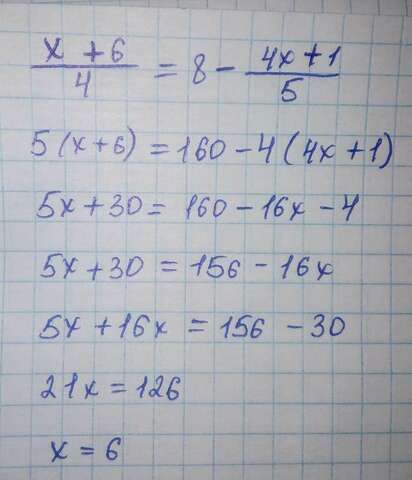 (x + 6)/4 = 8 - (4x + 1)/5
5(x + 6) = 160 - 4(4x + 1)
5x + 30 = 160 - 16x - 4
5x + 30 = 156 - 16x
5x + 16x = 156 - 30
21x = 126
x = 6